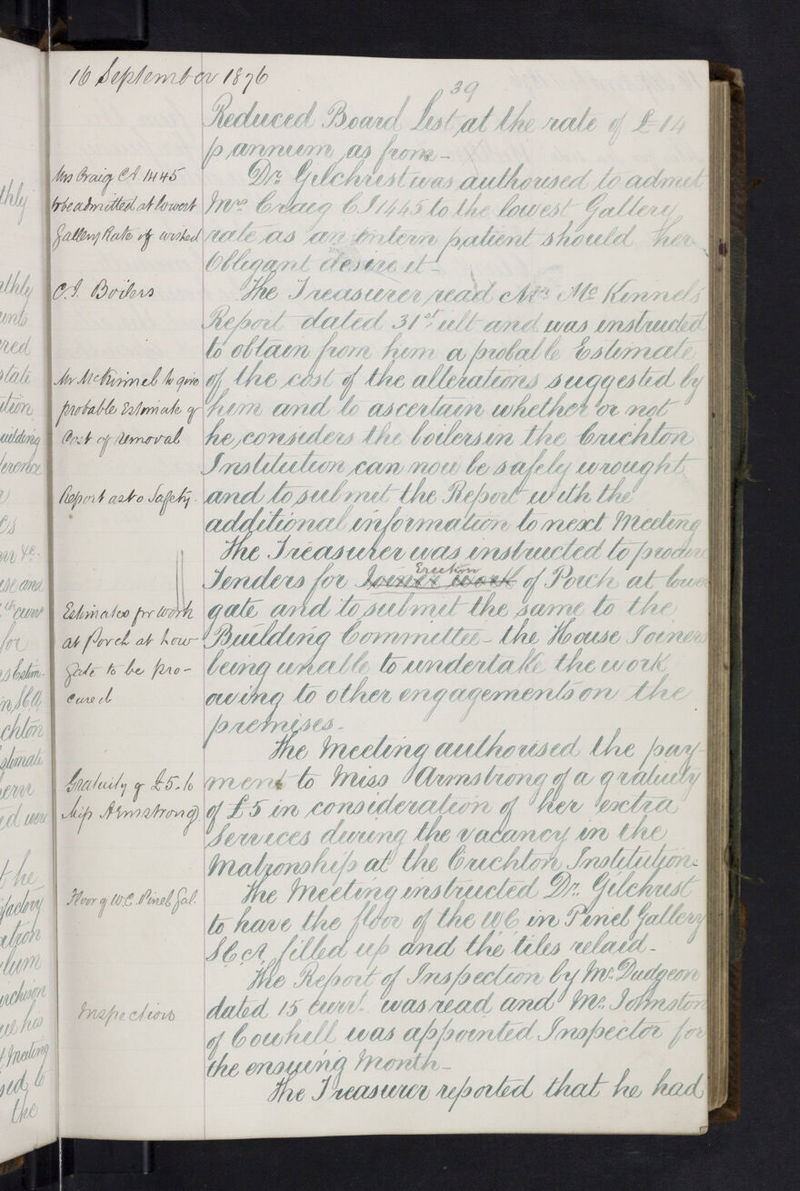 16 September 1876
39
Reduced Board List at the rate of £14
p annum as from -
Mrs Craig C.I. 1445
to be admitted at lowest
Gallery Rate if wished
Dr. Gilchrist was authorised to admit
Mrs Craig C.I. 1445 to the lowest Gallery
rate as an intern patient should her
Obligant desire it -
C.I. Boilers
The Treasurer read Mr. Mc Kinnel's
Report dated 31st ult and was instructed
to obtain from him a probable Estimate
Mr McKinnel to give
probable Estimate of
Cost of removal
of the cost of the alterations suggested by
him and to ascertain whether or not
he considers the boilers in the Crichton
Institution can now be safely wrought
Report as to Safety
and to submit the Report with the
additional information to next Meeting
The Treasurer was instructed to procure
Erection
Tenders for Joiner work of Porch at lower
Estimates for work
at Porch at low
gate to be pro-
cured
gate and to submit the same to the
Building Committee - the House Joiners
being unable to undertake the work
owing to other engagements on the
premises -
The Meeting authorised the pay-
Gratuity of £5 to
Miss Armstrong
ment to Miss Armstrong of a gratuity
of £5 in consideration of her extra
Services during the vacancy in the
Matronship at the Crichton Institution -
Floor of W.C. Pinel Gal.
The Meeting instructed Dr. Gilchrist
to have the floor of the WC in Pinel Gallery
S.C.A. filled up and the tiles relaid -
The Report of Inspection by Mr. Dudgeon
Inspection
dated 15 curt. was read and Mr. Johnston
of Cowhill was appointed Inspector for
the ensuing Month -
The Treasurer reported that he had